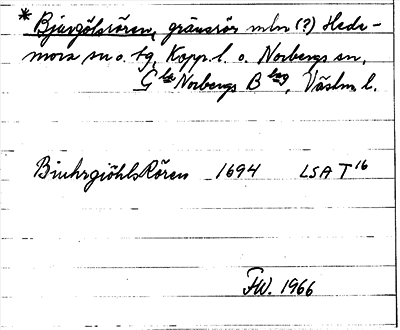 * Bjurgölsrören, gränsrör mln (?) Hede-
mora sn o. tg, Kopp. l. o. Norbergs sn,
G:la Norbergs B:lag, Västm. l.
BiuhrgiöhlsRören 1694 LSA T 16
FW. 1966